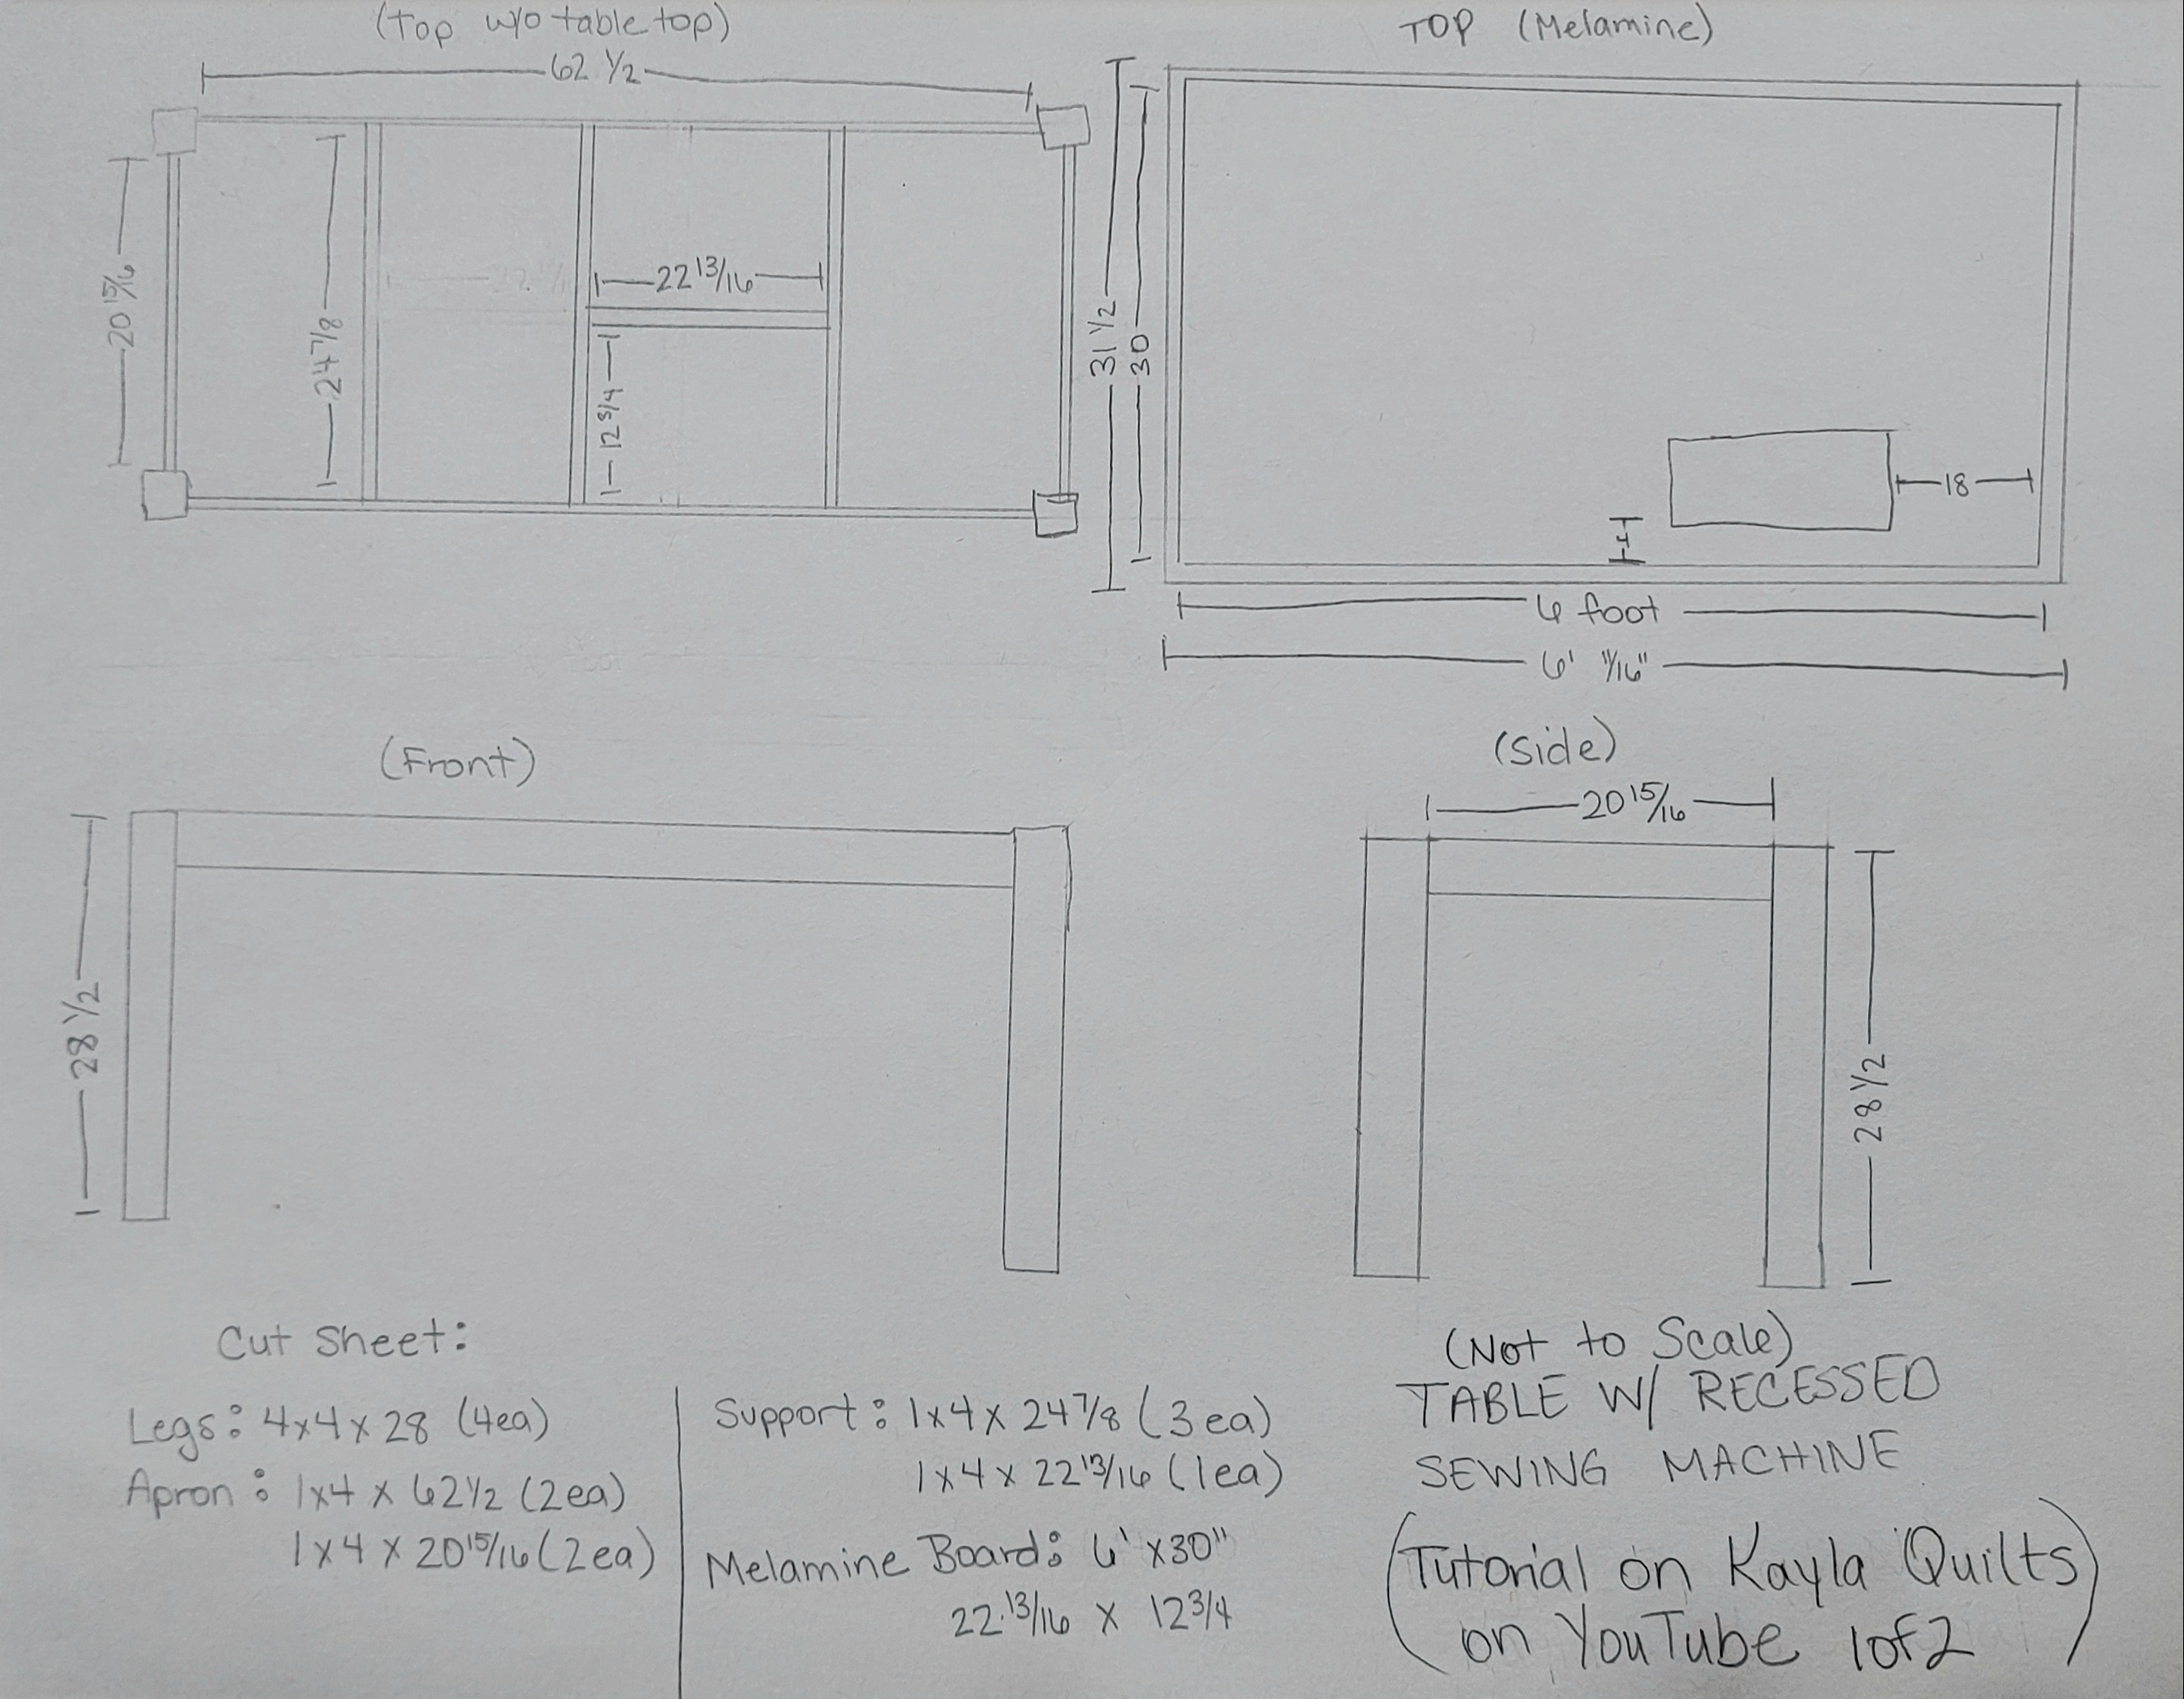 (Top w/o table top)
62 1/2
20 15/16
24 7/8
22 13/16
12 3/4
TOP (Melamine)
31 1/2
30
18
4
6 foot
6' 11/16"
(Front)
28 1/2
(Side)
20 15/16
28 1/2
Cut Sheet:
Legs: 4x4x28 (4ea)
Apron: 1x4 x 62 1/2 (2ea)
1x4 x 20 15/16 (2ea)
Support: 1x4 x 24 7/8 (3ea)
1x4x 22 13/16 (1ea)
Melamine Board: 6' x30"
22 13/16 x 12 3/4
(Not to Scale)
TABLE W/ RECESSED
SEWING MACHINE
(Tutorial on Kayla Quilts
on YouTube 1of2)